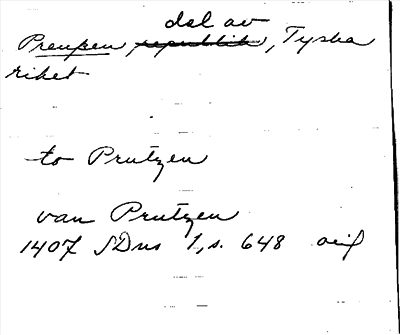 del av
Preußen republik, Tyska
riket
to Prutzen
van Prutzen
1407 SDns 1, s. 648 orig